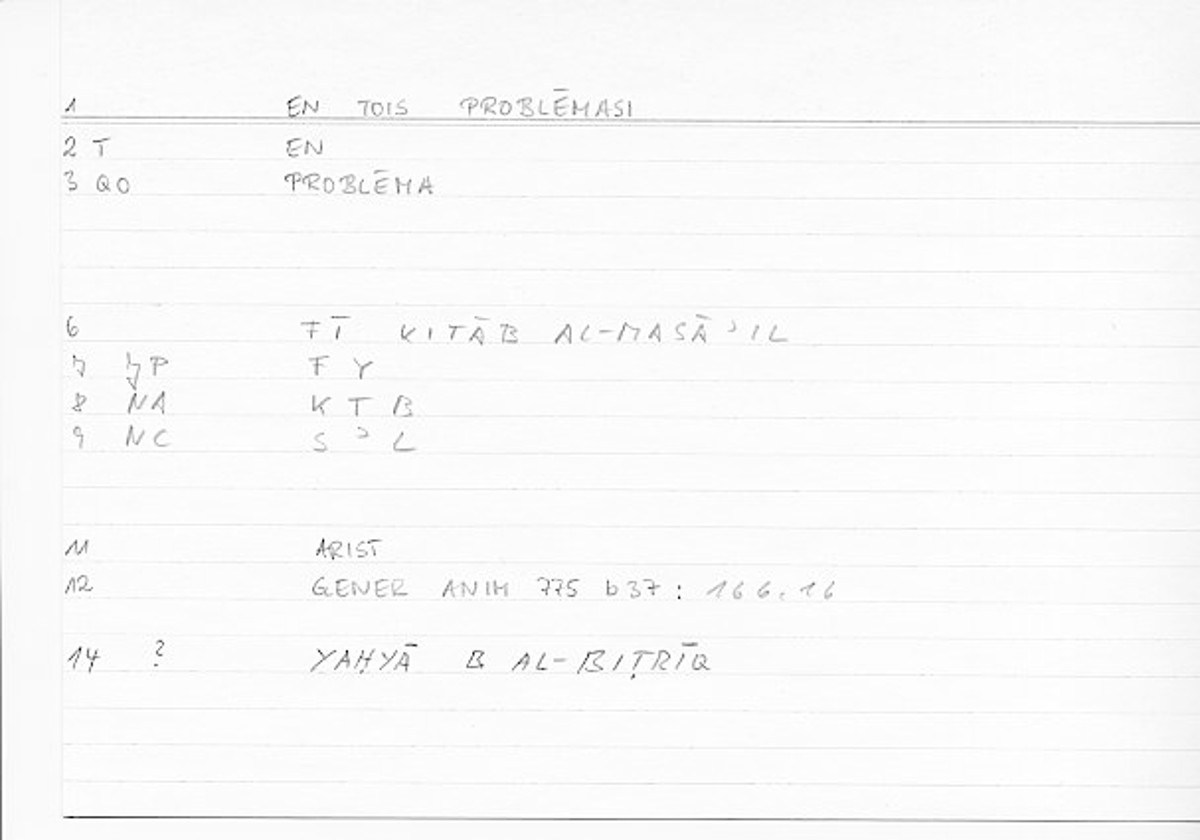 1 EN TOIS PROBLĒMASI
2 T EN
3 QO PROBLĒMA
6 FĪ KITĀB AL-MASĀʾIL
7 P F Y
8 NA K T B
9 NC S ʾ L
11 ARIST
12 GENER ANIM 775 b37 : 166.16
14 ? YAḤYĀ B AL-BIṬRĪQ